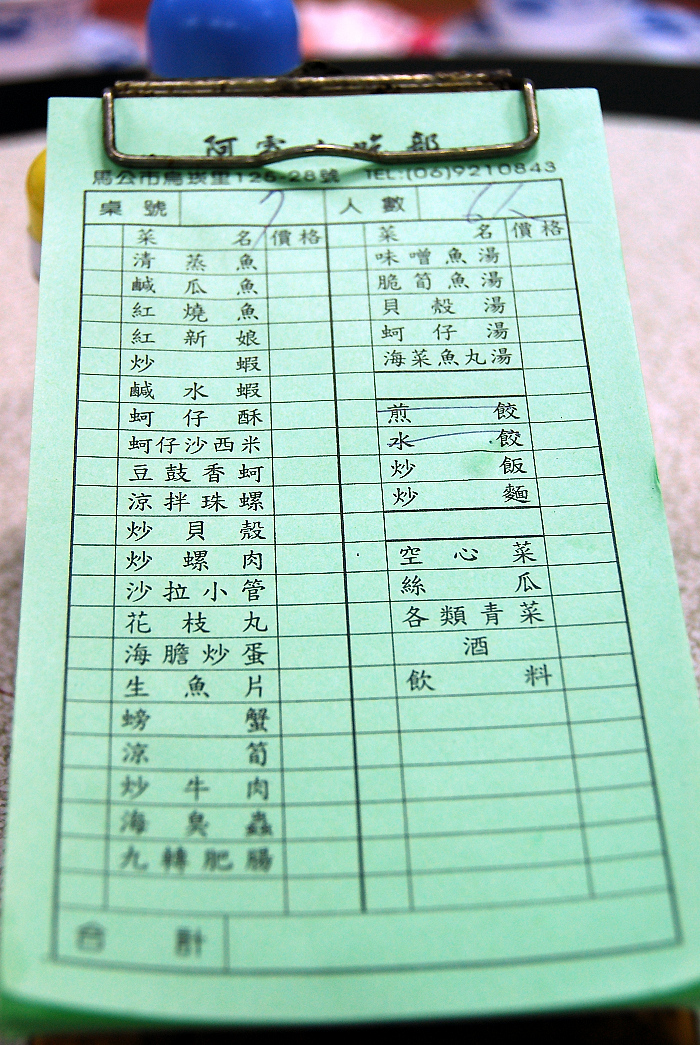 馬公市烏崁里126-28號 TEL:(06)9210843
桌號 7 人數
菜名 價格
清蒸魚
鹹瓜魚
紅燒魚
紅新娘
炒蝦
鹹水蝦
蚵仔酥
蚵仔沙西米
豆鼓香蚵
涼拌珠螺
炒貝殼
炒螺肉
沙拉小管
花枝丸
海膽炒蛋
生魚片
螃蟹
涼筍
炒牛肉
海臭蟲
九轉肥腸
菜名 價格
味噌魚湯
脆筍魚湯
貝殼湯
蚵仔湯
海菜魚丸湯
煎餃
水餃
炒飯
炒麵
空心菜
絲瓜
各類青菜
酒
飲料
合計